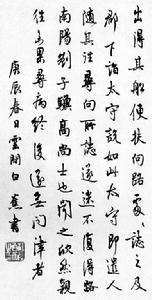 出得其船便扶向路處々誌之及
郡下詣太守說如此太守即遣人
隨其往尋向所誌遂迷不復得路
南陽劉子驥高尚士也聞之欣然親
往未果尋病終後遂無問津者
庚辰春日雲間白蕉書